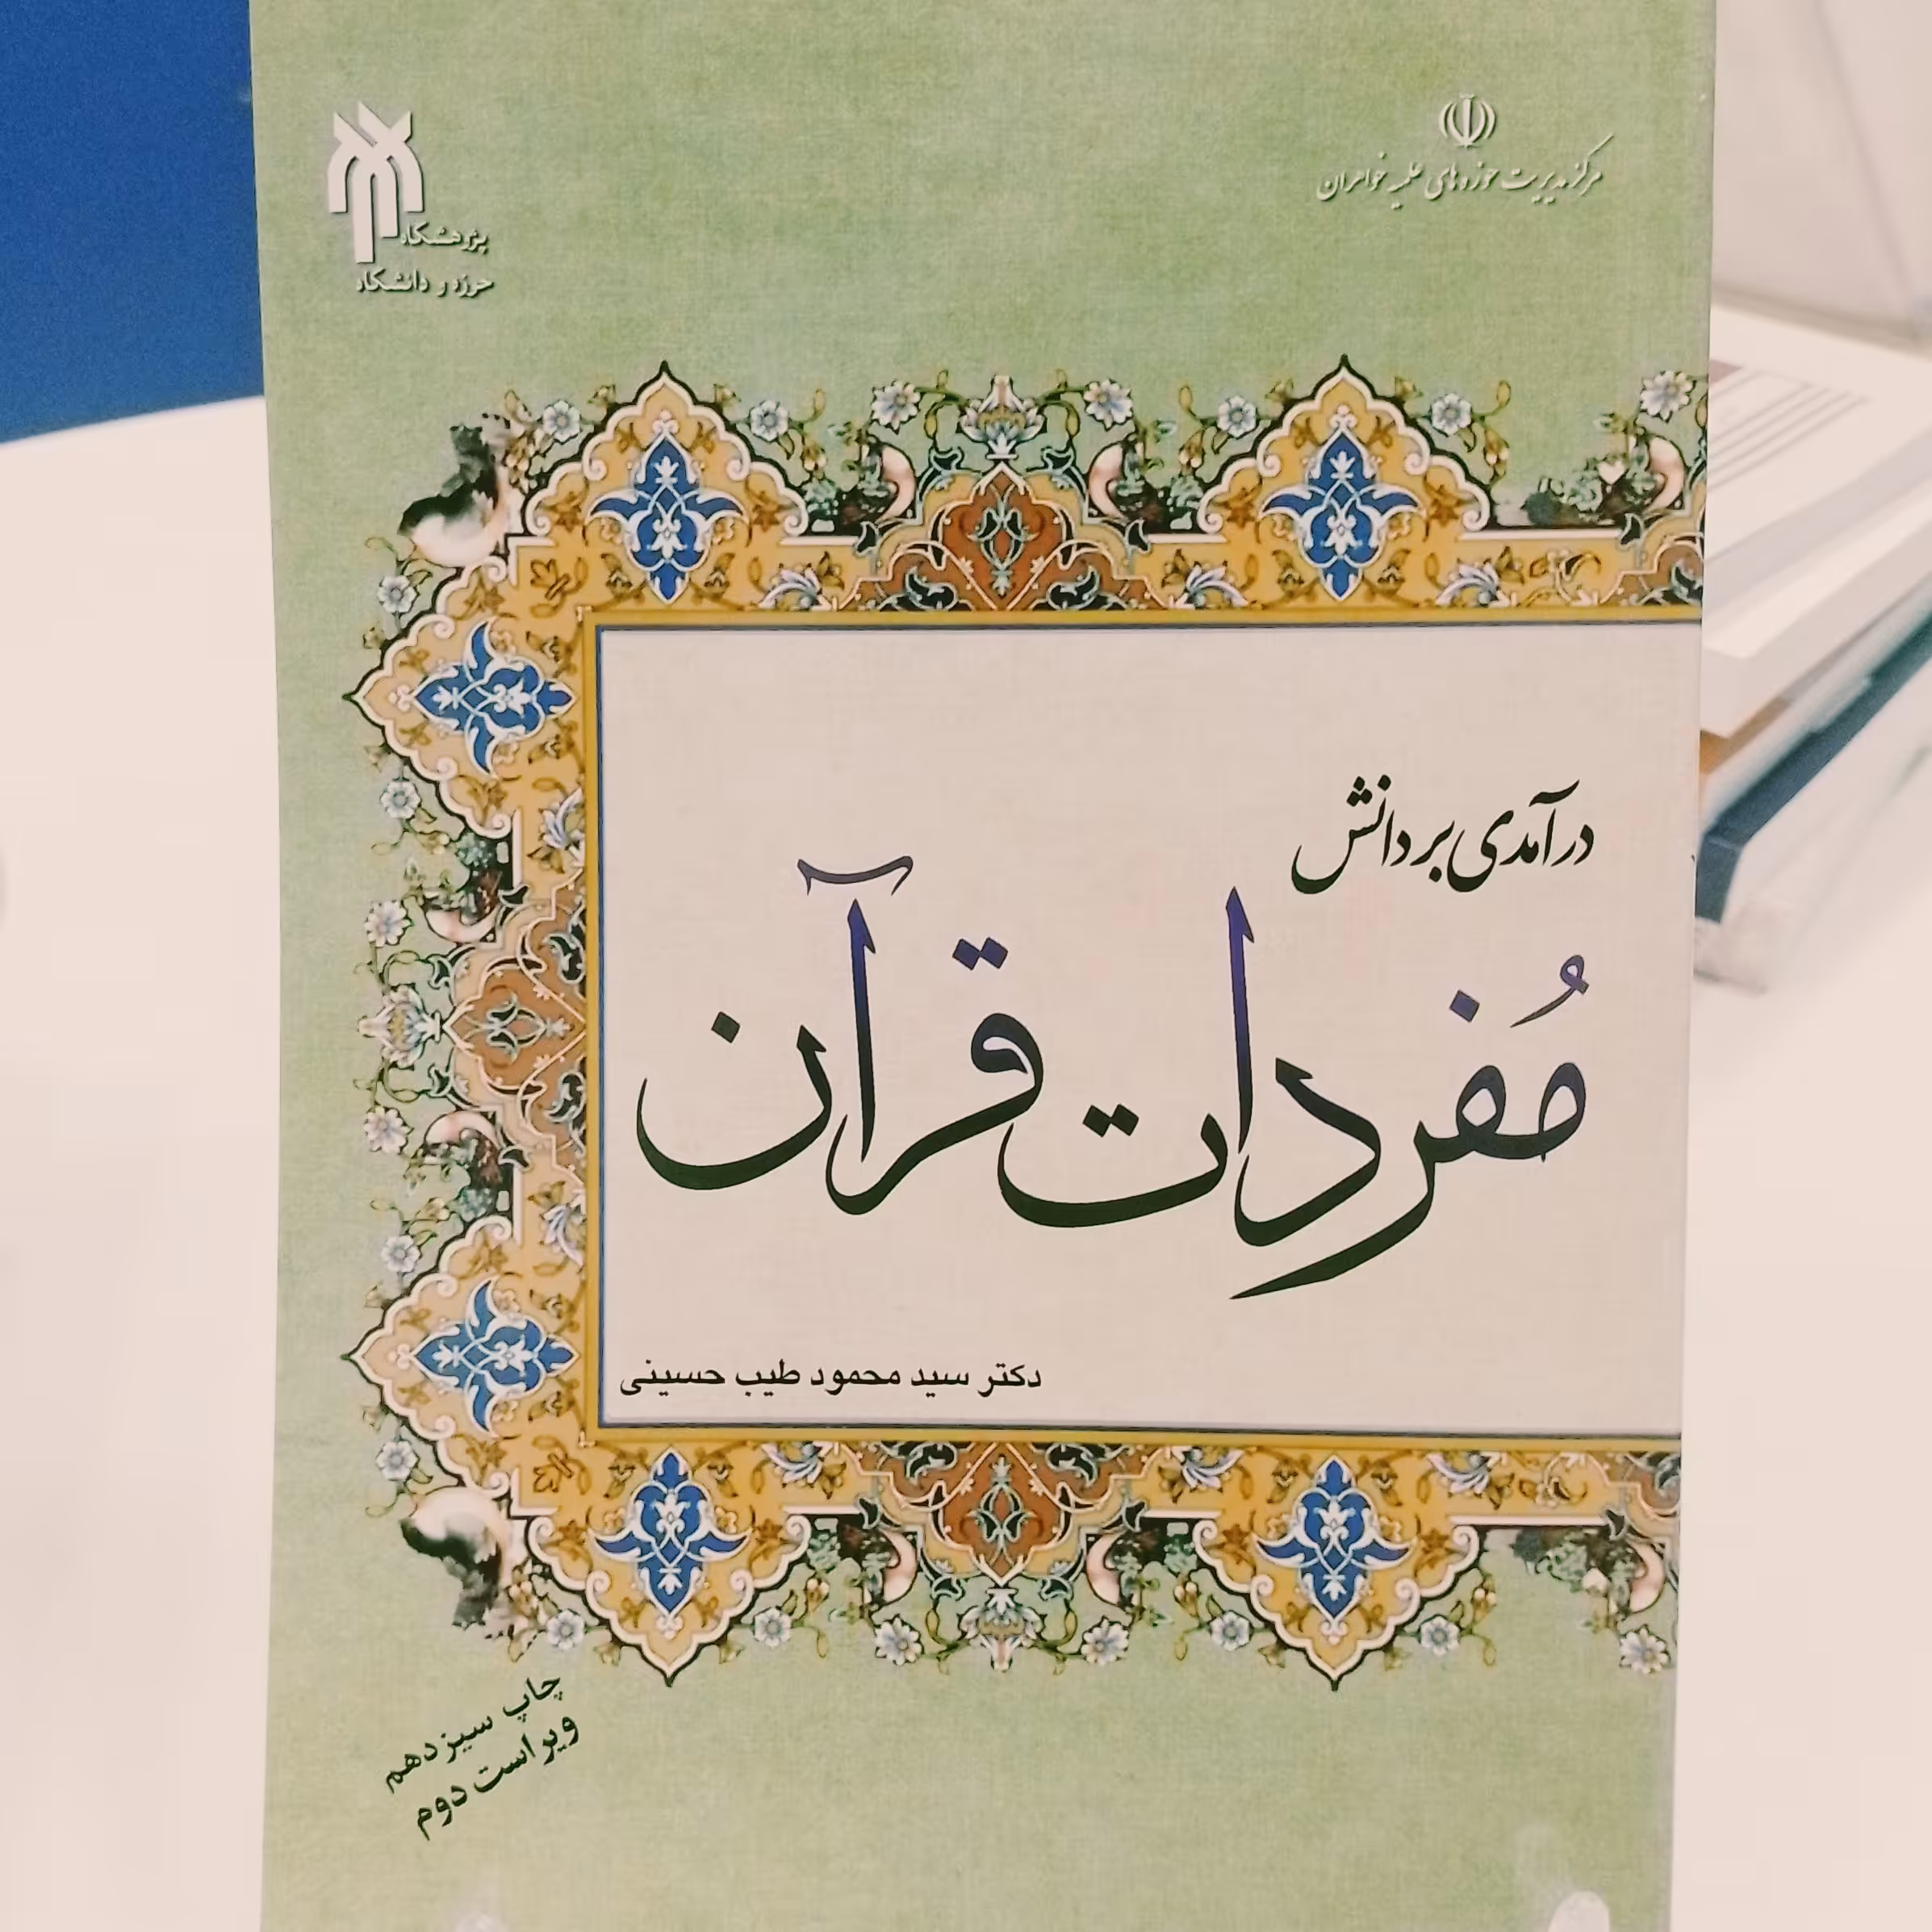 مرکز مدیریت حوزه های علمیه خواهران
پژوهشگاه
حوزه و دانشگاه
درآمدی بر دانش
مُفردات قرآن
دکتر سید محمود طیب حسینی
چاپ سیزدهم
ویراست دوم